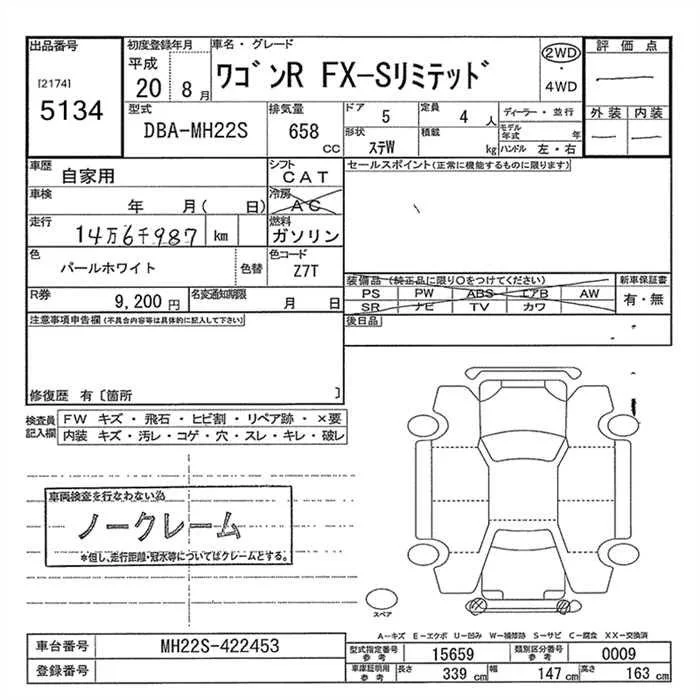 出品番号
[2174]
5134
初度登録年月
平成 20 8 月
車名・グレード
ワゴンR FX-Sリミテッド
2WD
・
4WD
評価点
外装 内装
型式
DBA-MH22S
排気量
658 CC
ドア 5
定員 4 人
形状 ステW
積載 kg
ディーラー・並行
モデル年式 年
ハンドル 左・右
車歴 自家用
シフト CAT
車検 年 月( 日)
冷房 AC
走行 14万6千987 km
燃料 ガソリン
色 パールホワイト
色替
色コード Z7T
R券 9,200 円
名変通知期限 月 日
セールスポイント(正常に機能するものに限ります)
装備品(純正品に限り○をつけてください)
PS PW ABS エアB AW
SR ナビ TV カワ
新車保証書
有・無
後日品
注意事項申告欄(不具合内容等は具体的に記入して下さい)
修復歴 有〔箇所 〕
検査員記入欄
FW キズ・飛石・ヒビ割・リペア跡・×要
内装 キズ・汚レ・コゲ・穴・スレ・キレ・破レ
車両検査を行なわない為
ノークレーム
*但し、走行距離・冠水等についてはクレームとする。
スペア
A-キズ E-エクボ U-凹み W-補修跡 S-サビ C-腐食 XX-交換済
車台番号 MH22S-422453
登録番号
型式指定番号参考 15659
類別区分番号参考 0009
車庫証明用参考 長さ 339 cm 幅 147 cm 高さ 163 cm